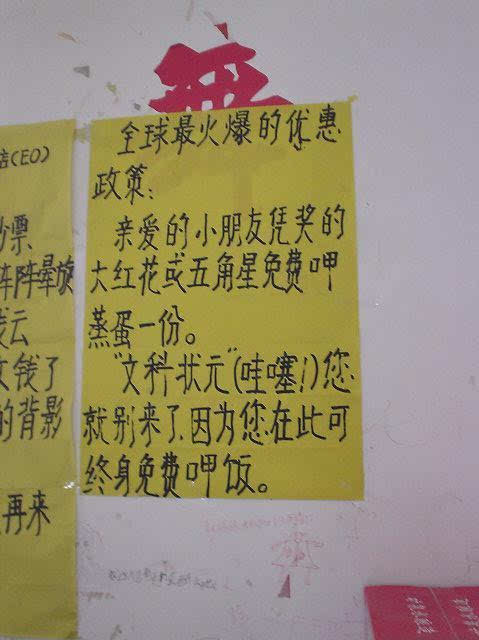 店(CEO)
票
阵阵晕旋
云
钱了
的背影
再来
全球最火爆的优惠
政策:
亲爱的小朋友凭奖的
大红花或五角星免费呷
蒸蛋一份。
"文科状元"(哇噻!)您
就别来了,因为您在此可
终身免费呷饭。